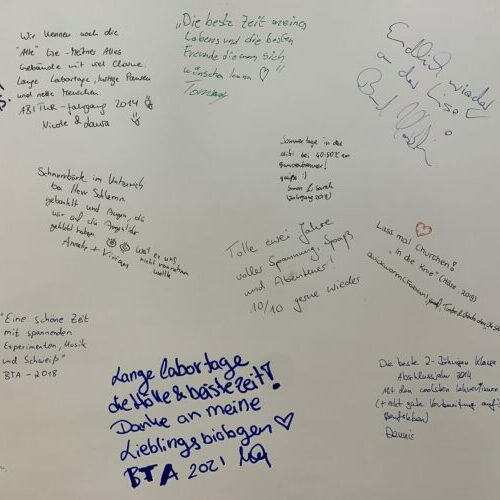 Wir kennen noch die
"Alte" Lise-Meitner Altes
Gebäude mit viel Charme
Lange Labortage, lustige Pausen
und nette Menschen
ABITUR-Jahrgang 2014
Nicole & Laura
"Die beste Zeit meines
Lebens und die besten
Freunde die man sich
wünschen kann
Endlich wieder
an der Lise!
Sommertage in der
bei 40-50°C im
Simon & Sarah
2018)
Schnurrbärte im Unterricht
bei Herr Schlemm
gebastelt und Augen, die
wir auf die Augenlider
geklebt haben
Annele + Vivian
weil er uns
nicht
wollte
Tolle zwei Jahre
voller Spannung, Spaß
und Abenteuer!
10/10 gerne wieder
Lass mal Churchen?
"in die Kirie" (Hilde, 2019)
"Eine schöne Zeit
mit spannenden
Experimenten, Musik
und Schweiß"
BTA - 2018
Lange labortage
die Hölle & beste zeit!
Danke an meine
Lieblingsbiologen
BTA 2021
Die beste 2-Jährigen Klasse
Abschlussjahr 2014
Mit den coolsten Lehrerinnen
(+ echt gute Vorbereitung aufs
Berufsleben)
Dennis